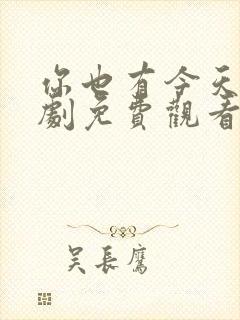 你也有今天
劇免費觀看
吴長鷹